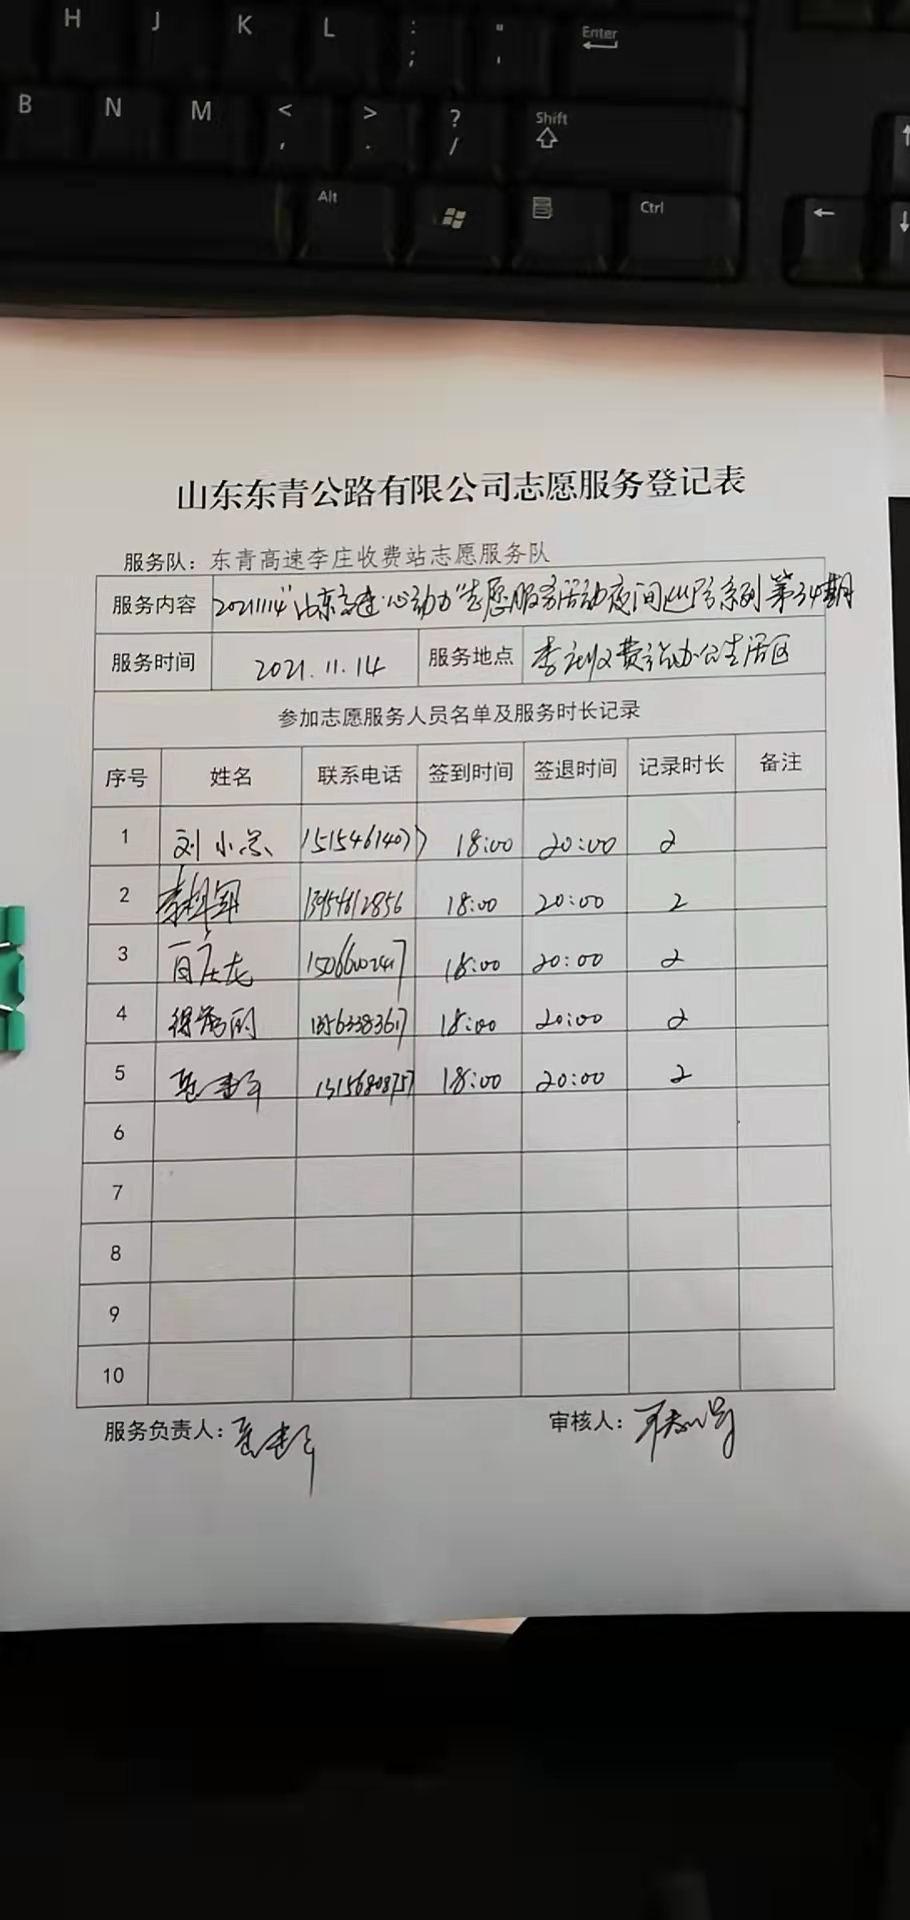 H J K L : ; " ' Enter
B N M < , > . ? / Shift
Alt Ctrl
山东东青公路有限公司志愿服务登记表
服务队：东青高速李庄收费站志愿服务队
服务内容 20211114"山东高速·心动力"志愿服务活动夜间巡防系列第34期
服务时间 2021.11.14 服务地点 李庄收费站办公生活区
参加志愿服务人员名单及服务时长记录
序号 姓名 联系电话 签到时间 签退时间 记录时长 备注
1 刘小 15154614077 18:00 20:00 2
2 13954612856 18:00 20:00 2
3 18:00 20:00 2
4 18:00 20:00 2
5 18:00 20:00 2
6
7
8
9
10
服务负责人： 审核人：